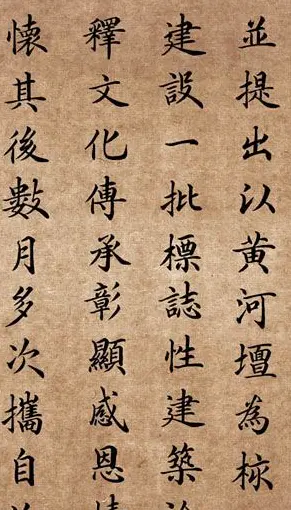 並提出以黄河壇為
建設一批標誌性建築
釋文化傳承彰顯感恩
懷其後數月多次攜自